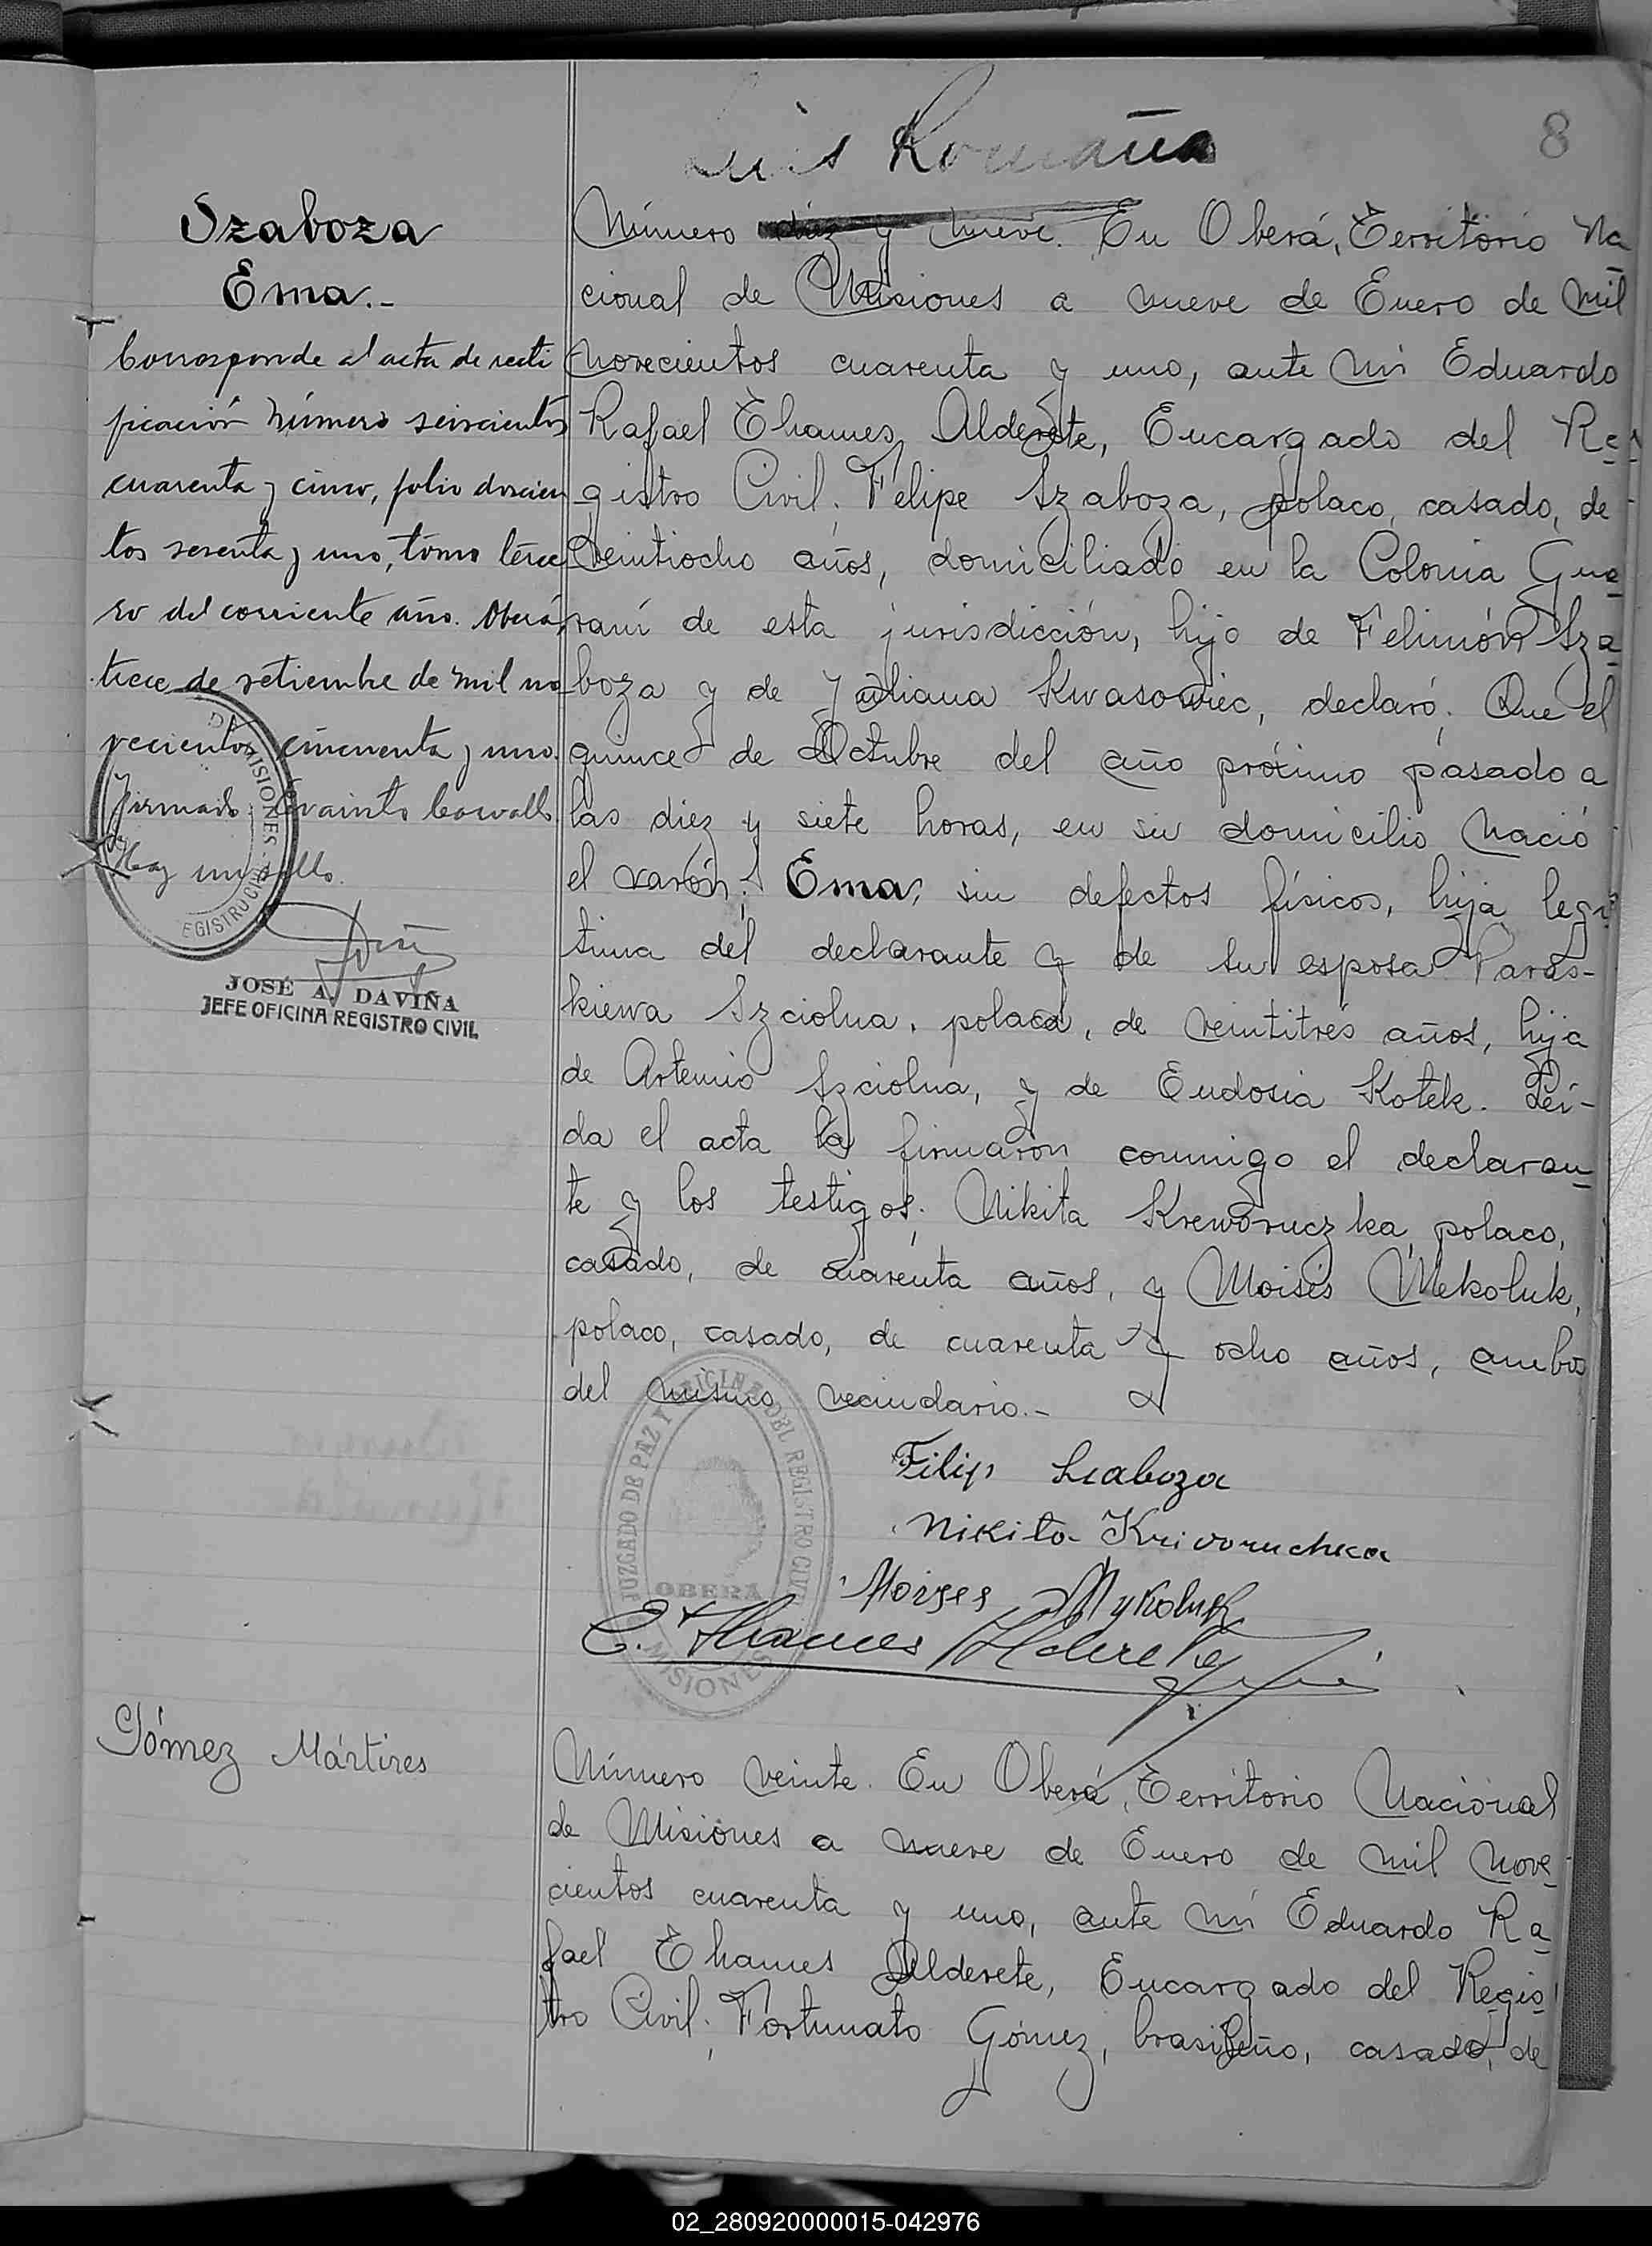 Luis Romaña
8
Szaboza
Ema.-
Corresponde al acta de recti
ficación número seiscientos
cuarenta y cinco, folio doscien
tos sesenta y uno, tomo terce
ro del corriente año. Oberá,
trece de setiembre de mil no
vecientos cincuenta y uno.
Firmado
Hay un sello.
DE MISIONES
REGISTRO CIVIL
JOSÉ A. DAVIÑA
JEFE OFICINA REGISTRO CIVIL
Número diez y nueve. En Oberá, Territorio Na
cional de Misiones a nueve de Enero de mil
novecientos cuarenta y uno, ante mi Eduardo
Rafael Thames Alderete, Encargado del Re
gistro Civil; Felipe Szaboza, polaco, casado, de
veintiocho años, domiciliado en la Colonia Gua
raní de esta jurisdicción, hijo de Felimón Sza
boza y de Juliana Kwasowiec, declaró: Que el
quince de Octubre del año próximo pasado a
las diez y siete horas, en su domicilio nació
el varón: Ema, sin defectos físicos, hija legí
tima del declarante y de su esposa Paras-
kiewa Szciolna, polaca, de veintitrés años, hija
de Artemio Szciolna, y de Eudosia Kotek. Leí-
da el acta la firmaron conmigo el declaran
te y los testigos; Nikita Kreworuczka, polaco,
casado, de cuarenta años, y Moisés Mekoluk,
polaco, casado, de cuarenta y ocho años, ambos
del mismo vecindario.-
JUZGADO DE PAZ Y OFICINA DEL REGISTRO CIVIL
OBERÁ
MISIONES
Filip Szaboza
Nikita Krivoruchka
Moises Mykoluk
E. Thames Alderete
Gómez Mártires
Número veinte. En Oberá, Territorio Nacional
de Misiones a nueve de Enero de mil nove
cientos cuarenta y uno, ante mí Eduardo Ra
fael Thames Alderete, Encargado del Regis
tro Civil; Fortunato Gómez, brasileño, casado, de
02_280920000015-042976